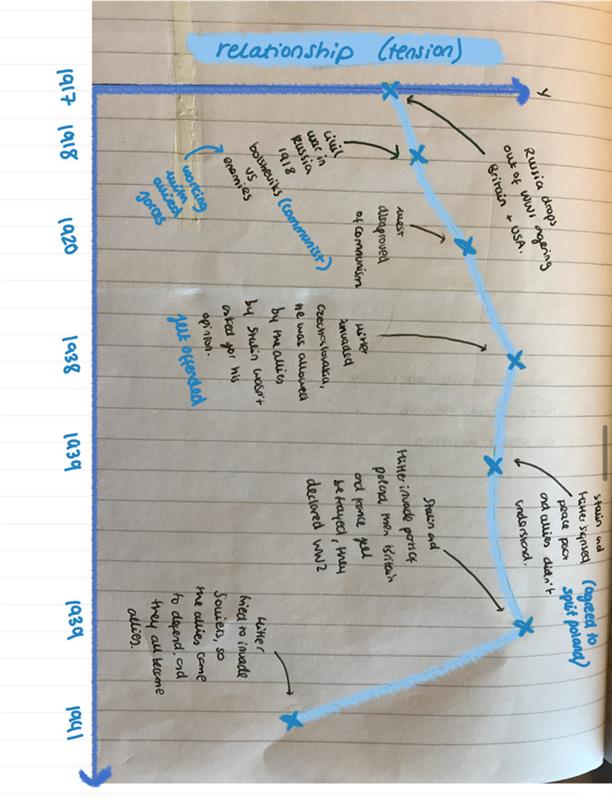 relationship (tension)
Y
Russia drops
out of WW1 angering
Britain + USA.
civil
war in
Russia
1918
bolsheviks (communist)
vs
enemies
working
with
allied
forces
west
disaproved
of communism
Hitler
invaded
czechoslovakia,
he was allowed
by the allies
by Stalin wasn't
asked for his
opinion.
felt offended
stalin and
Hitler signed
peace pact
and allies didn't
understand.
(agreed to
split poland)
Stalin and
Hitler invade parts of
poland, then Britain
and france feel
betrayed, they
declared WW2
Hitler
tried to invade
Soviets, so
the allies came
to defend, and
they all became
allies.
1917
1918
1920
1938
1939
1939
1941